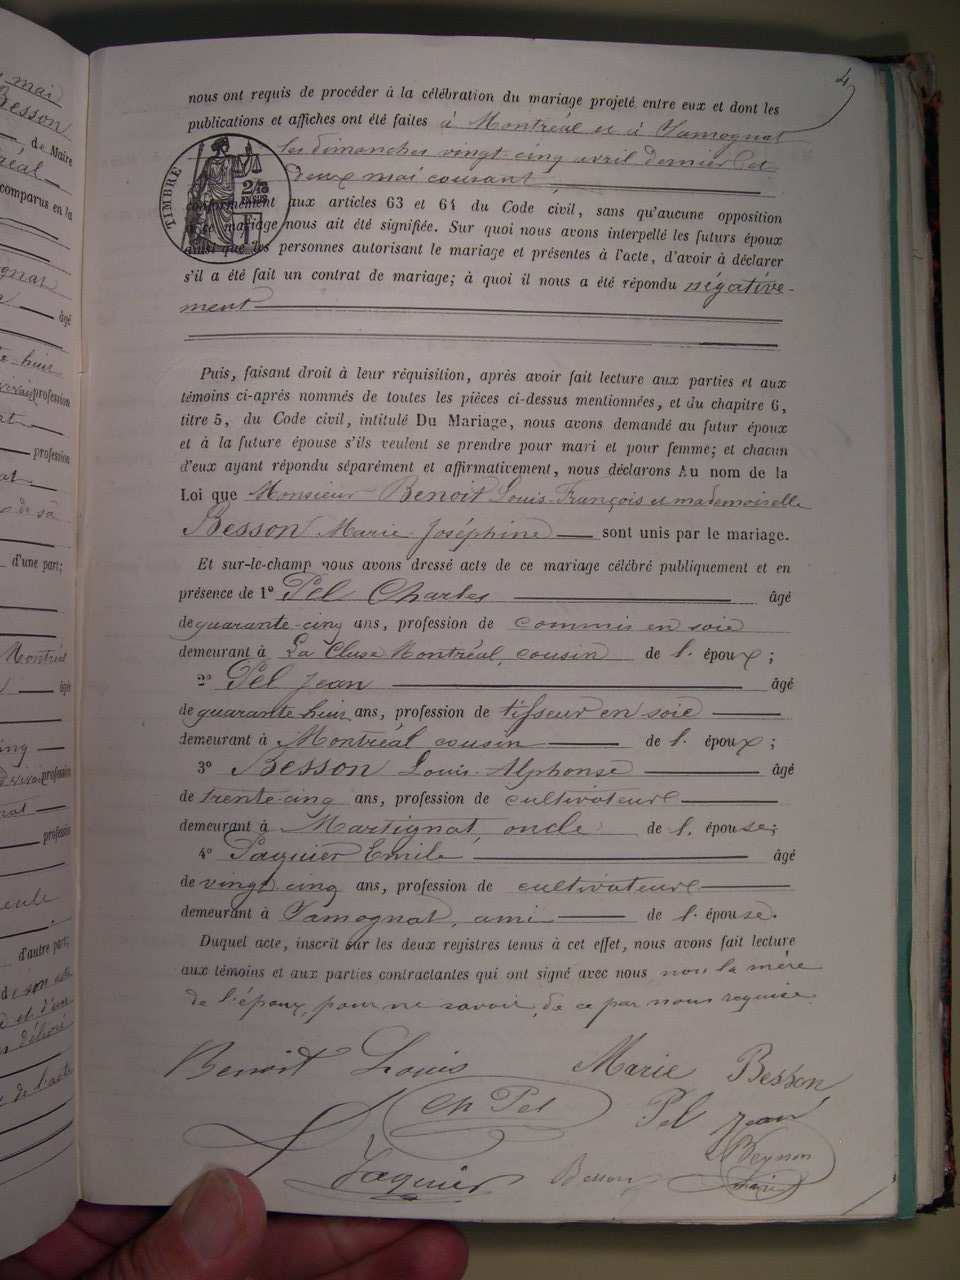 mai
Besson
de Maire
réal
comparus en la
gnat
âgé
te-huit
profession
at
profession
nat
de sa
d'une part;
Montréal
âgé
cinq
profession
nat
profession
d'autre part;
de l'acte
4
nous ont requis de procéder à la célébration du mariage projeté entre eux et dont les
publications et affiches ont été faites à Montréal et à Samognat
les dimanches vingt-cinq avril dernier et
deux mai courant
TIMBRE
conformément aux articles 63 et 64 du Code civil, sans qu'aucune opposition
à ce mariage nous ait été signifiée. Sur quoi nous avons interpellé les futurs époux
ainsi que les personnes autorisant le mariage et présentes à l'acte, d'avoir à déclarer
s'il a été fait un contrat de mariage; à quoi il nous a été répondu négative-
ment
Puis, faisant droit à leur réquisition, après avoir fait lecture aux parties et aux
témoins ci-après nommés de toutes les pièces ci-dessus mentionnées, et du chapitre 6,
titre 5, du Code civil, intitulé Du Mariage, nous avons demandé au futur époux
et à la future épouse s'ils veulent se prendre pour mari et pour femme; et chacun
d'eux ayant répondu séparément et affirmativement, nous déclarons Au nom de la
Loi que Monsieur Benoit Louis-François et mademoiselle
Besson Marie-Joséphine sont unis par le mariage.
Et sur-le-champ nous avons dressé acte de ce mariage célébré publiquement et en
présence de 1° Pel Charles âgé
de quarante-cinq ans, profession de commis en soie
demeurant à La Cluse Montréal, cousin de l. époux;
2° Pel Jean âgé
de quarante huit ans, profession de tisseur en soie
demeurant à Montréal cousin de l. époux;
3° Besson Louis-Alphonse âgé
de trente-cinq ans, profession de cultivateur
demeurant à Martignat, oncle de l. épouse;
4° Paquier Emile âgé
de vingt cinq ans, profession de cultivateur
demeurant à Samognat, ami de l. épouse.
Duquel acte, inscrit sur les deux registres tenus à cet effet, nous avons fait lecture
aux témoins et aux parties contractantes qui ont signé avec nous non la mère
de l'époux, pour ne savoir, de ce par nous requise.
Benoit Louis Marie Besson
Ch Pel Pel Jean
Paquier Besson Beynon
maire